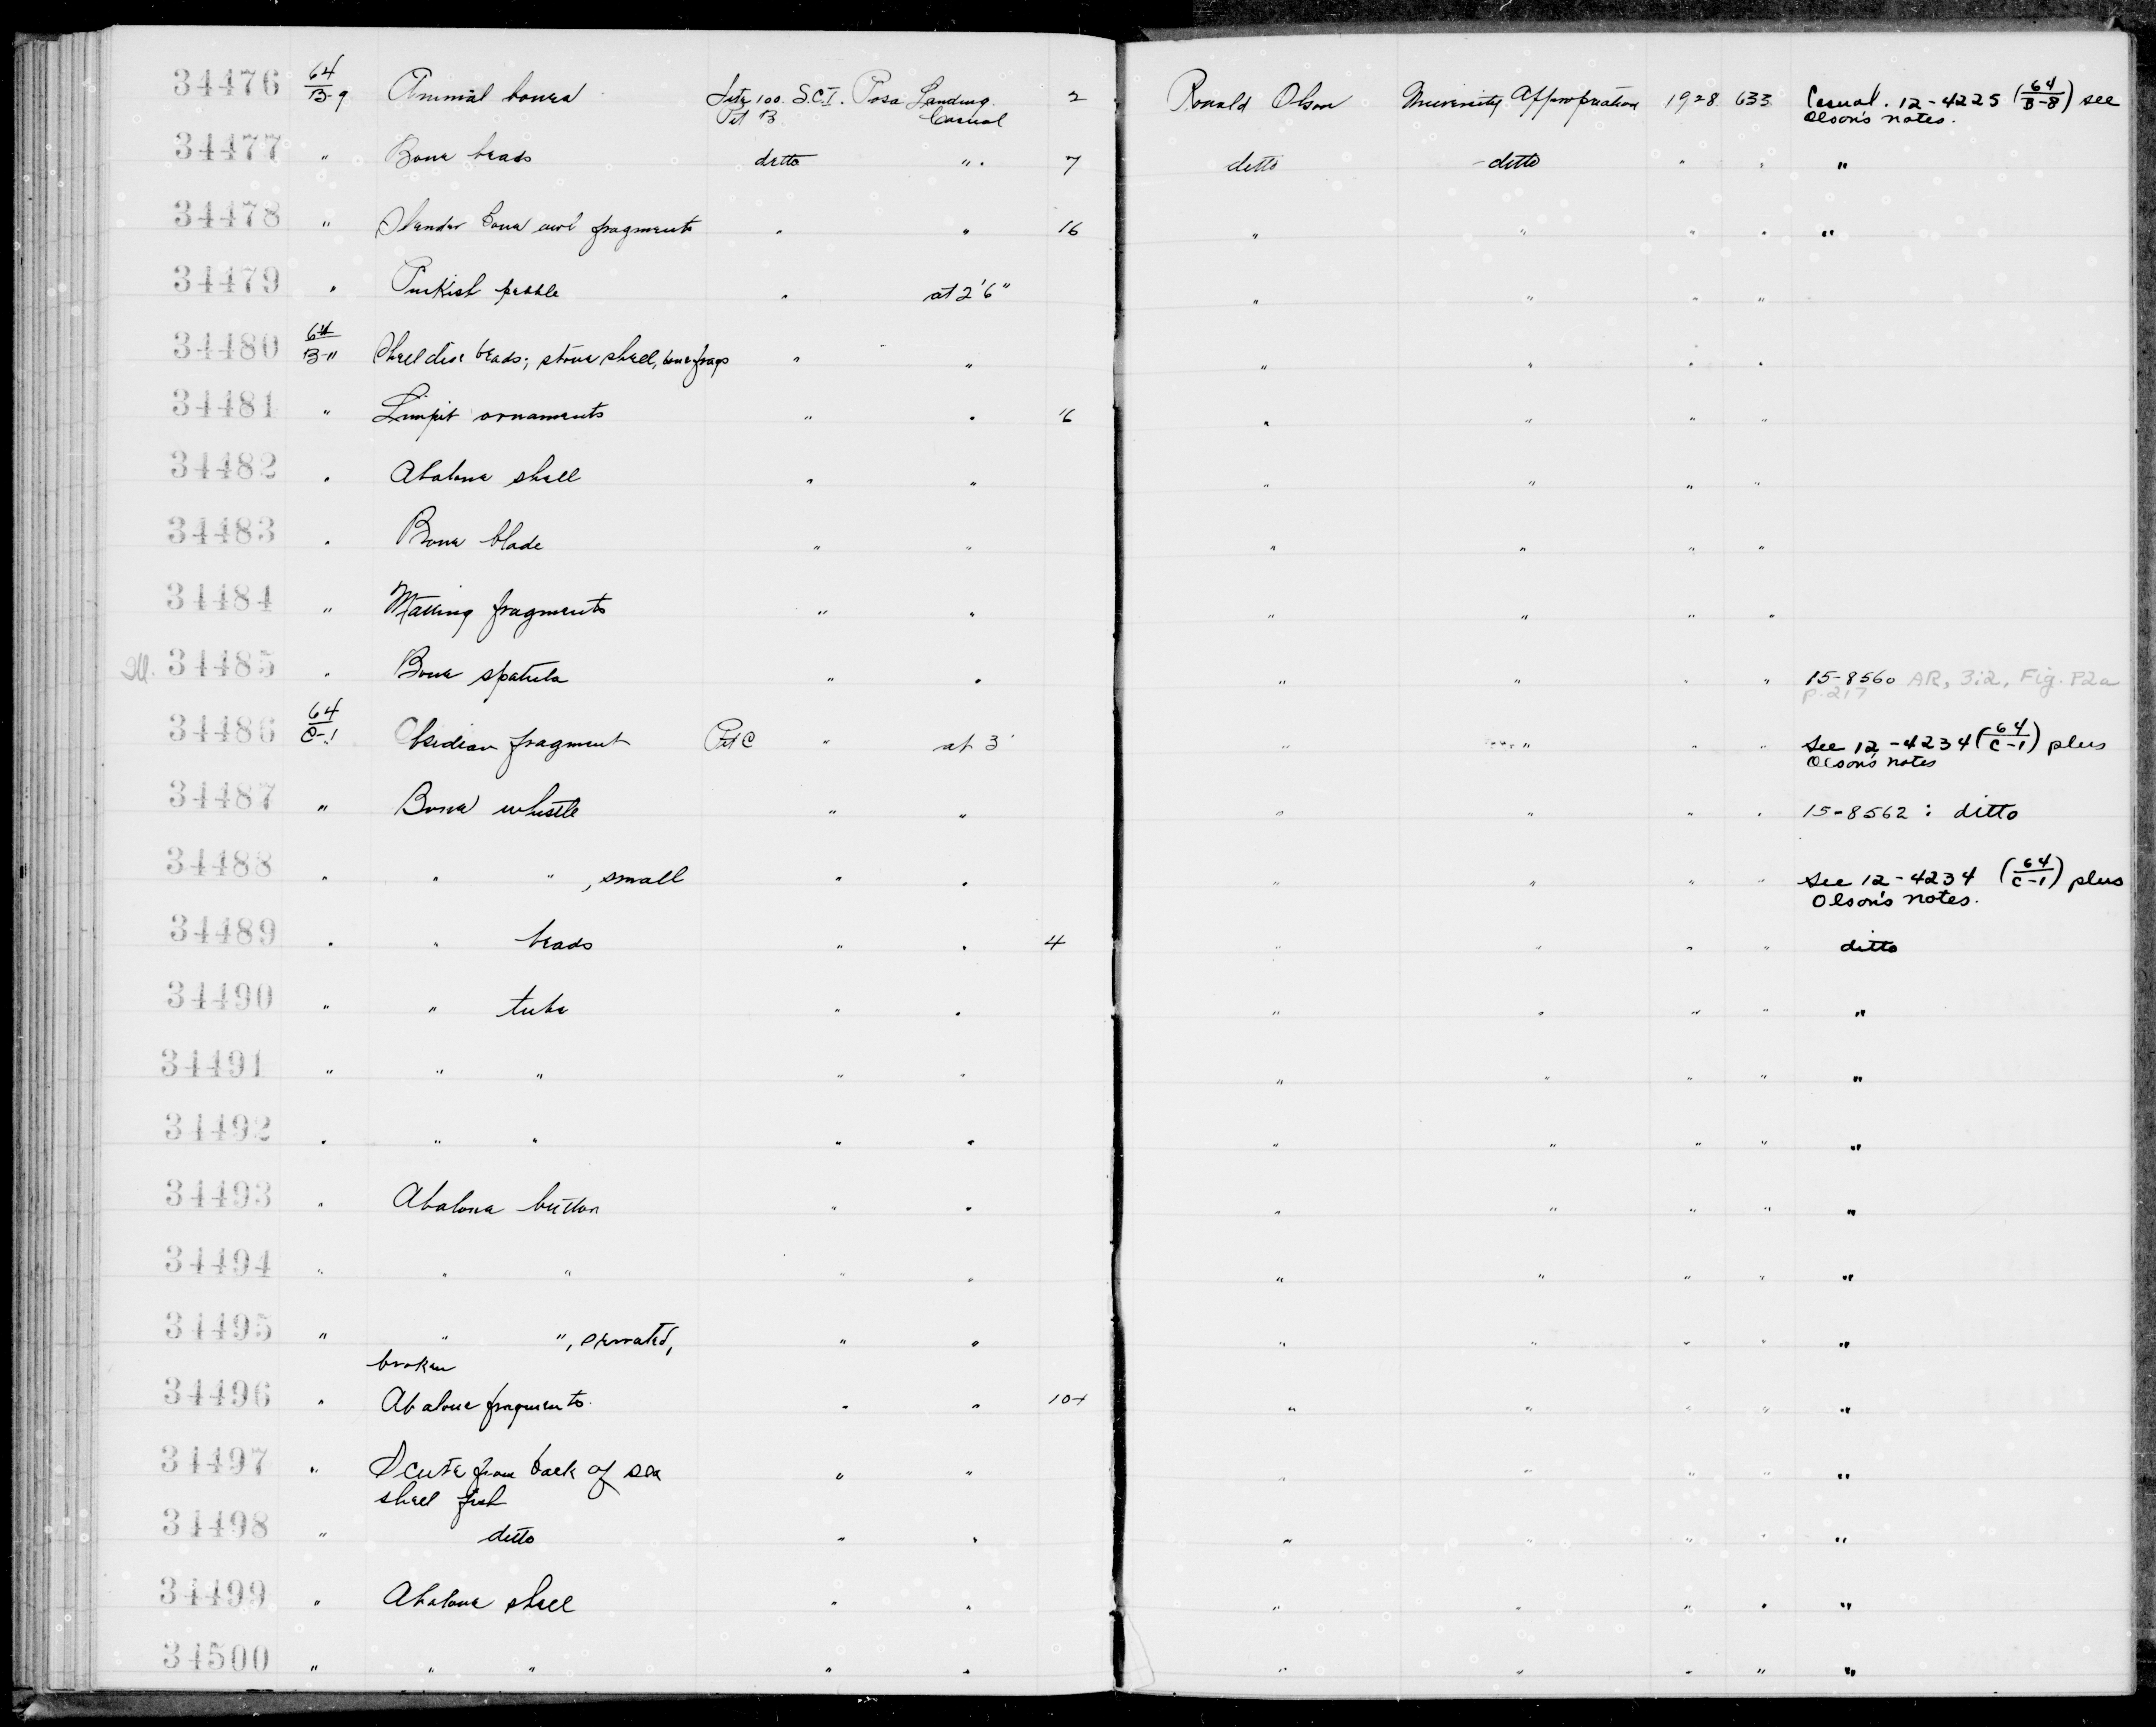 34476 64/B-9 Animal bones Site 100. S.C.I. Posa Landing. 2 Ronald Olson University Appropriation 1928 633 Casual. 12-4225 (64/B-8) see
Pit B Casual Olson's notes.
34477 " Bone beads ditto " . 7 ditto ditto " " "
34478 " Slender bone awl fragments " " 16 " " " " "
34479 " Purkish pebble " at 2'6" " " " "
34480 64/B-11 Shell disc beads; stone shell, bone frags " " " " " "
34481 " Limpit ornaments " " 6 " " " "
34482 " Abalone shell " " " " " "
34483 " Bone blade " " " " " "
34484 " Matting fragments " " " " " "
Ill. 34485 " Bone spatula " " " " " " 15-8560 AR, 3:2, Fig. P2a
p. 217
34486 64/C-1 Obsidian fragment Pit C " at 3' " " " " See 12-4234 (64/C-1) plus
Olson's notes
34487 " Bone whistle " " " " " " 15-8562 : ditto
34488 " " " , small " " " " " " See 12-4234 (64/C-1) plus
Olson's notes.
34489 " " beads " " 4 " " " " ditto
34490 " " tube " " " " " " "
34491 " " " " " " " " " "
34492 " " " " " " " " " "
34493 " Abalone button " " " " " " "
34494 " " " " " " " " " "
34495 " " " , serrated, " " " " " " "
broken
34496 " Abalone fragments. " " 10+ " " " " "
34497 " Scute from back of sea " " " " " " "
shell fish
34498 " ditto " " " " " " "
34499 " Abalone shell " " " " " " "
34500 " " " " " " " " " "